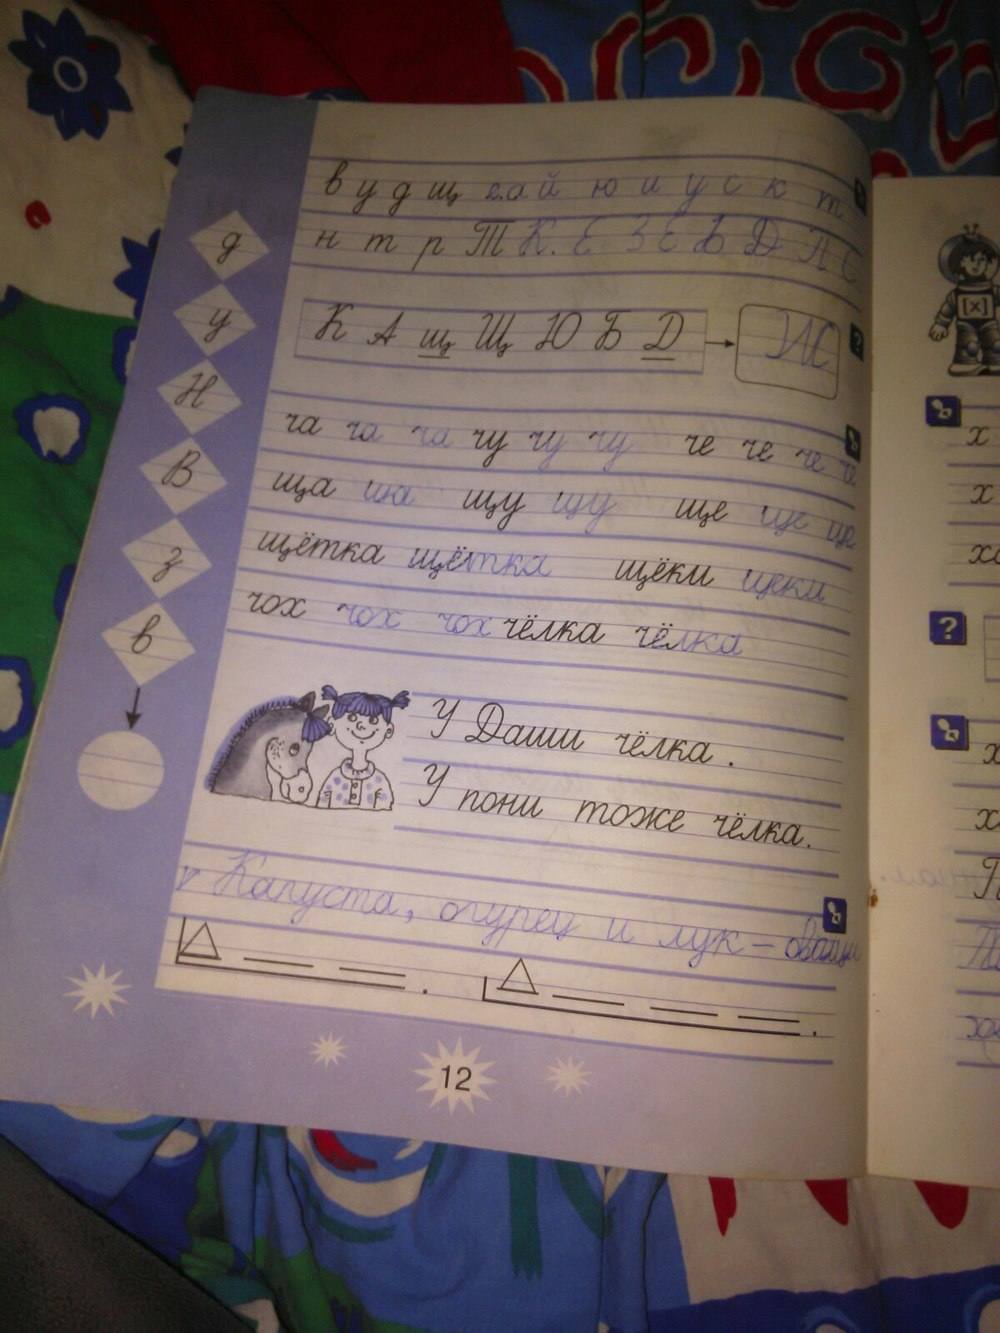 в у д щ г. а й ю и у с к т
н т р Т К. Е З Е Б Д Л С
д
у
К А щ Щ Ю Б Д
Н
ча ча ча чу чу чу че че че че
В
ща ща щу щу ще ще ще
з
щётка щётка щёки щеки
в
чох чох чох чёлка чёлка
У Даши чёлка.
У пони тоже чёлка.
Капуста, огурец и лук –
12
[х]
?
х
х
?
х
х